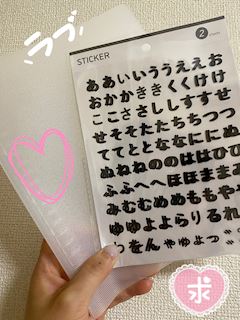 ラブ
STICKER
2
ああいいううええお
おかかききくくけけ
ここささししすすせ
せそそたたちちつつ
ててとととななににぬ
ぬねねのののははひひ
ふふへへほほままみ
みむむめめももやや
ゆゆよよらりるれ
わをん ゃゅょっ
求